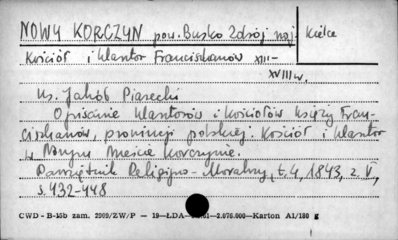 NOWY KORCZYN pow. Busko Zdrój woj. Kielce
Kościół i klasztor Franciszkanów XIII-
XVIII w.
Ks. Jakób Piasecki
Opisanie klasztorów i kościołów księży Fran-
ciszkanów, prowincji polskiej. Kościół i klasztor
w Nowym Mieście Korczynie.
Pamiętnik Religijno-Moralny, t. 4, 1843, z. V,
s. 432-448
CWD - B-15b zam. 2009/ZW/P — 19—ŁDA— 2.076.000—Karton A1/180 g